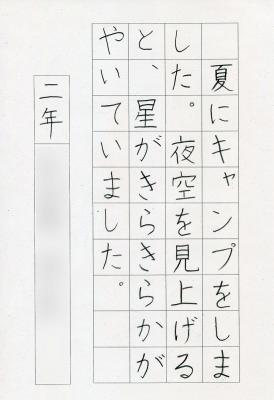 夏にキャンプをしま
した。夜空を見上げる
と、星がきらきらかが
やいていました。
二年